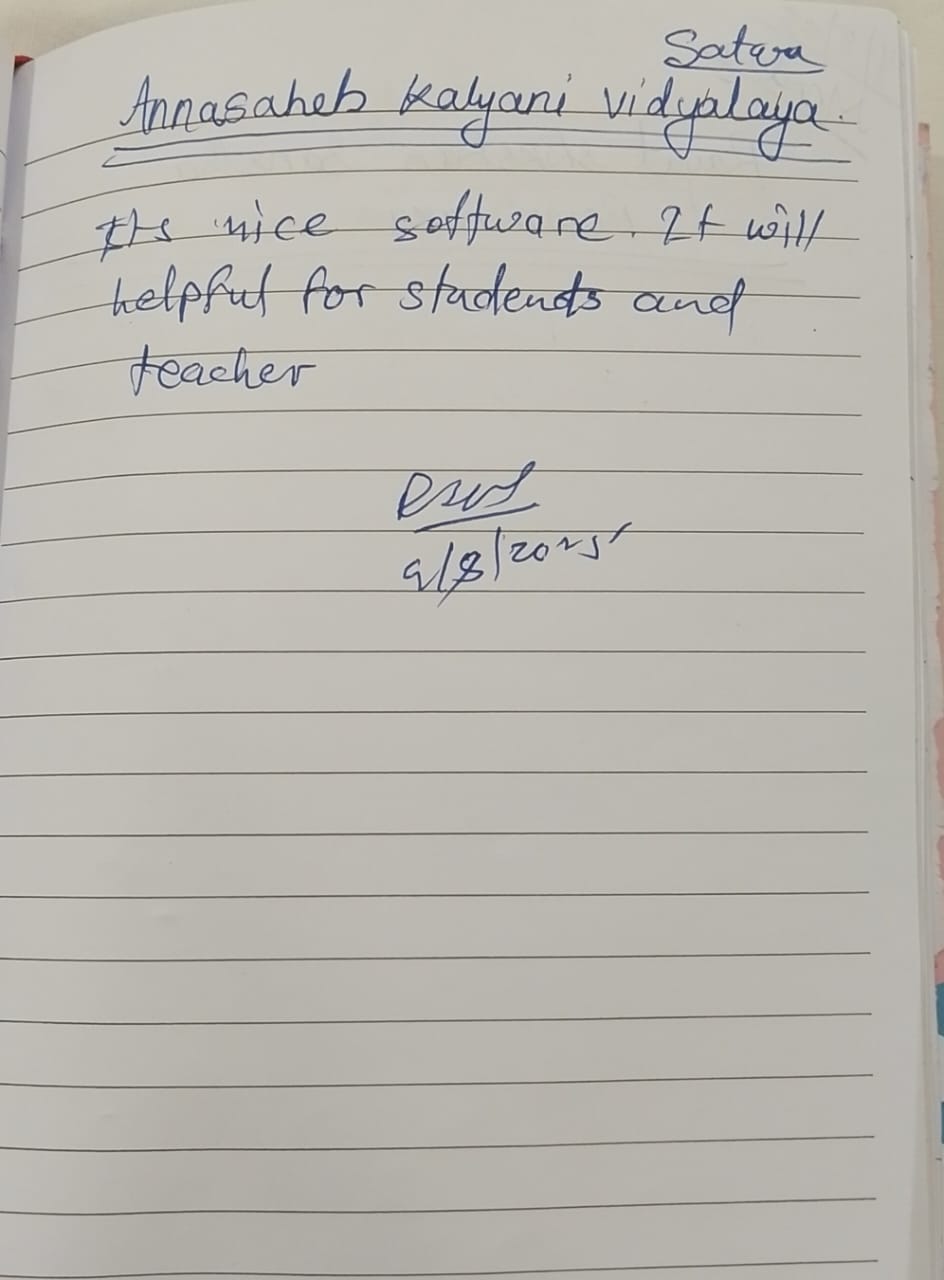 Satara
Annasaheb Kalyani vidyalaya.
Its nice software. It will
helpful for students and
teacher
9/8/2025